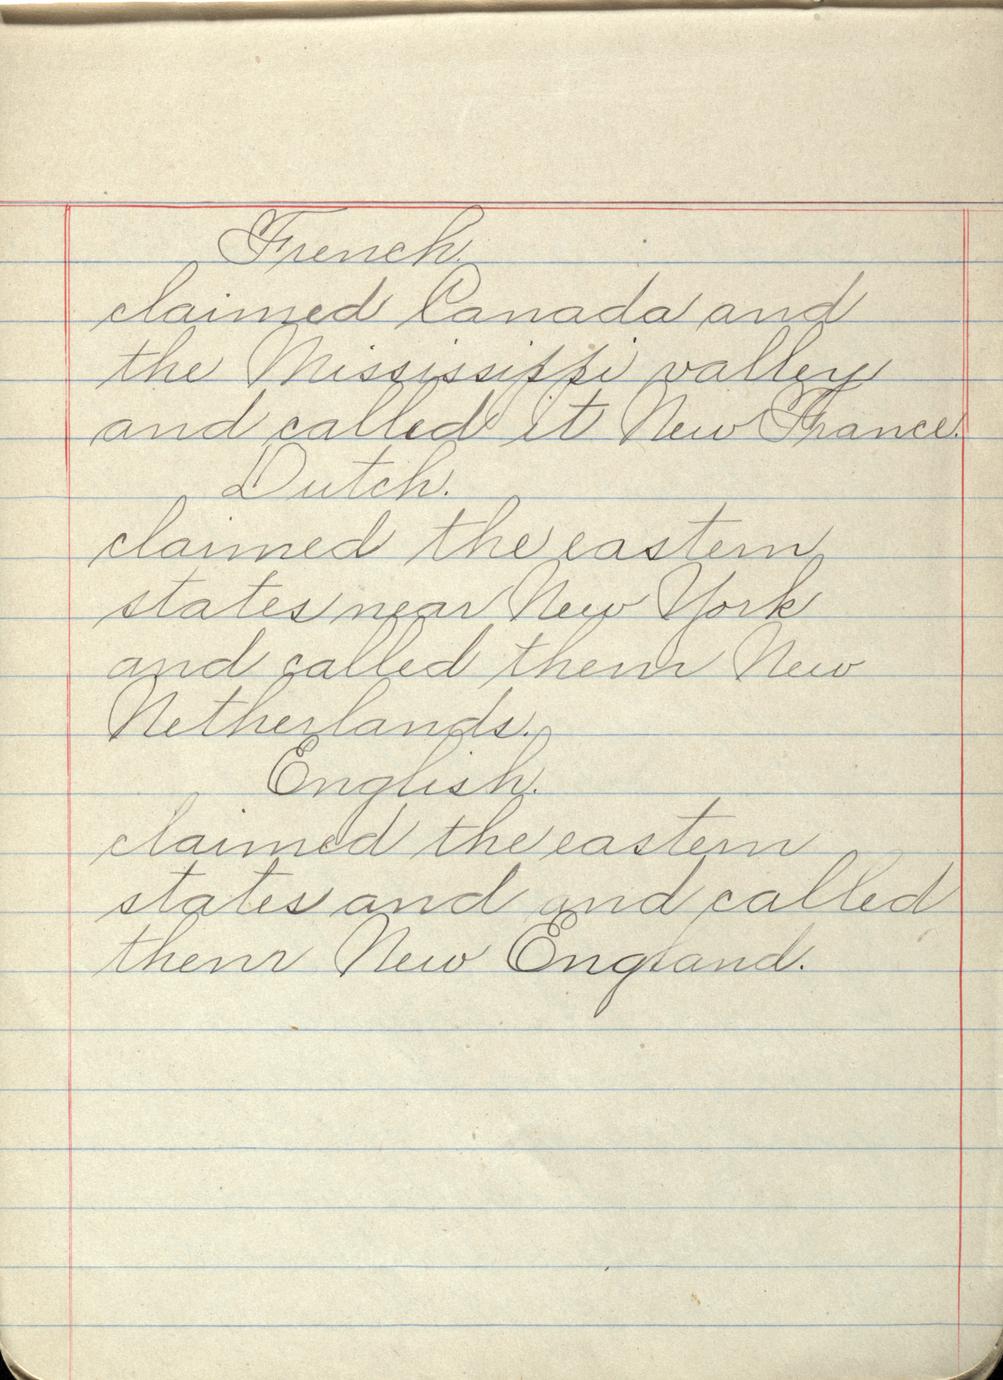 French.
claimed Canada and
the Mississippi valley
and called it New France.
Dutch.
claimed the eastern
states near New York
and called them New
Netherlands.
English.
claimed the eastern
states and and called
them New England.